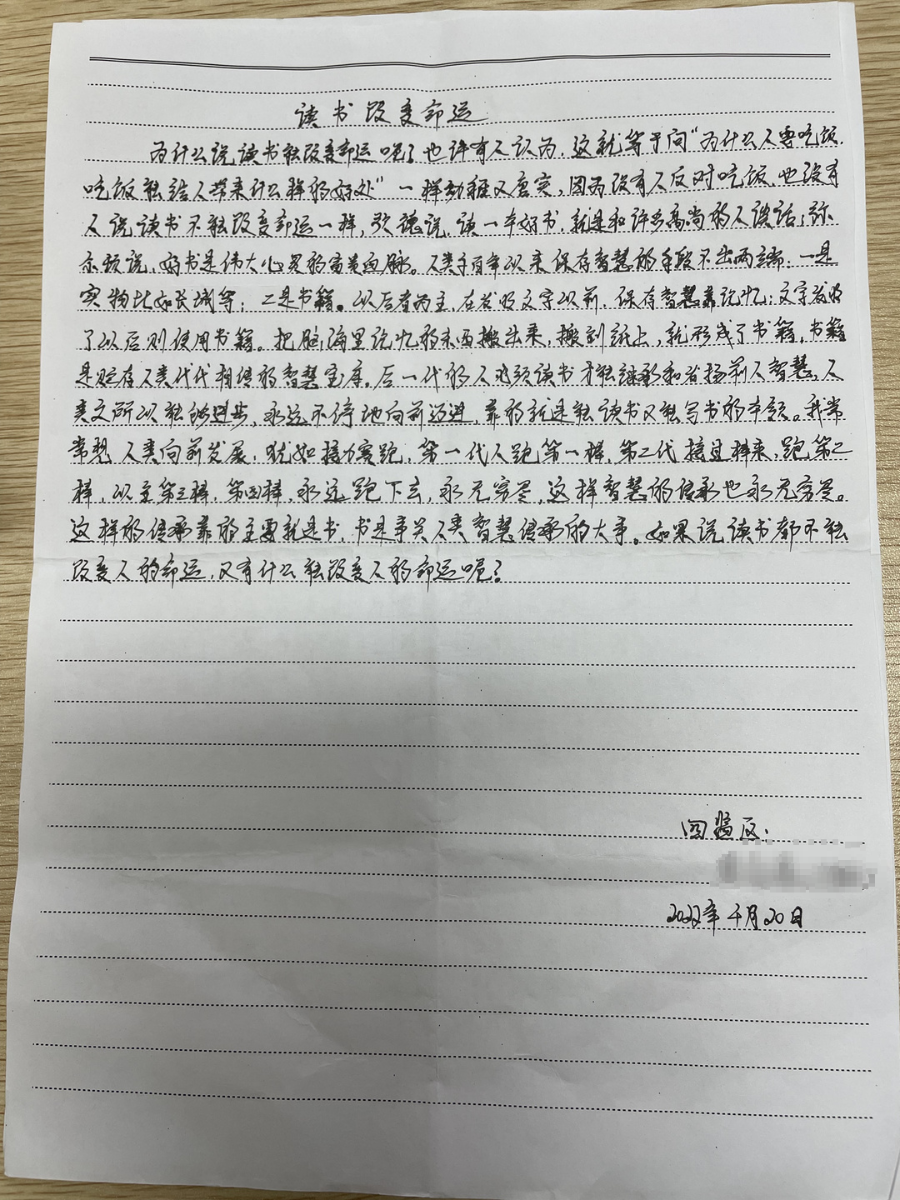 读书改变命运
为什么说读书能改变命运呢？也许有人认为，这就等于问“为什么人要吃饭，
吃饭能给人带来什么样的好处”一样幼稚又唐突，因为没有人反对吃饭，也没有
人说读书不能改变命运一样，歌德说，读一本好书，就是和许多高尚的人谈话；弥
尔顿说，好书是伟大心灵的富贵血脉。人类千百年以来保存智慧的手段不出两端：一是
实物比如长城等；二是书籍。以后者为主，在发明文字以前，保存智慧靠记忆；文字发明
了以后则使用书籍。把脑海里记忆的东西搬出来，搬到纸上，就形成了书籍，书籍
是贮存人类代代相传的智慧宝库。后一代的人必须读书才能继承和发扬前人智慧，人
类之所以能够进步，永远不停地向前迈进，靠的就是能读书又能写书的本领。我常
常想，人类向前发展，犹如接力赛跑，第一代人跑第一棒，第二代接过棒来，跑第二
棒，以至第三棒，第四棒，永远跑下去，永无穷尽，这样智慧的传承也永无穷尽。
这样的传承靠的主要就是书，书是事关人类智慧传承的大事。如果说读书都不能
改变人的命运，又有什么能改变人的命运呢？
四
2022年4月20日